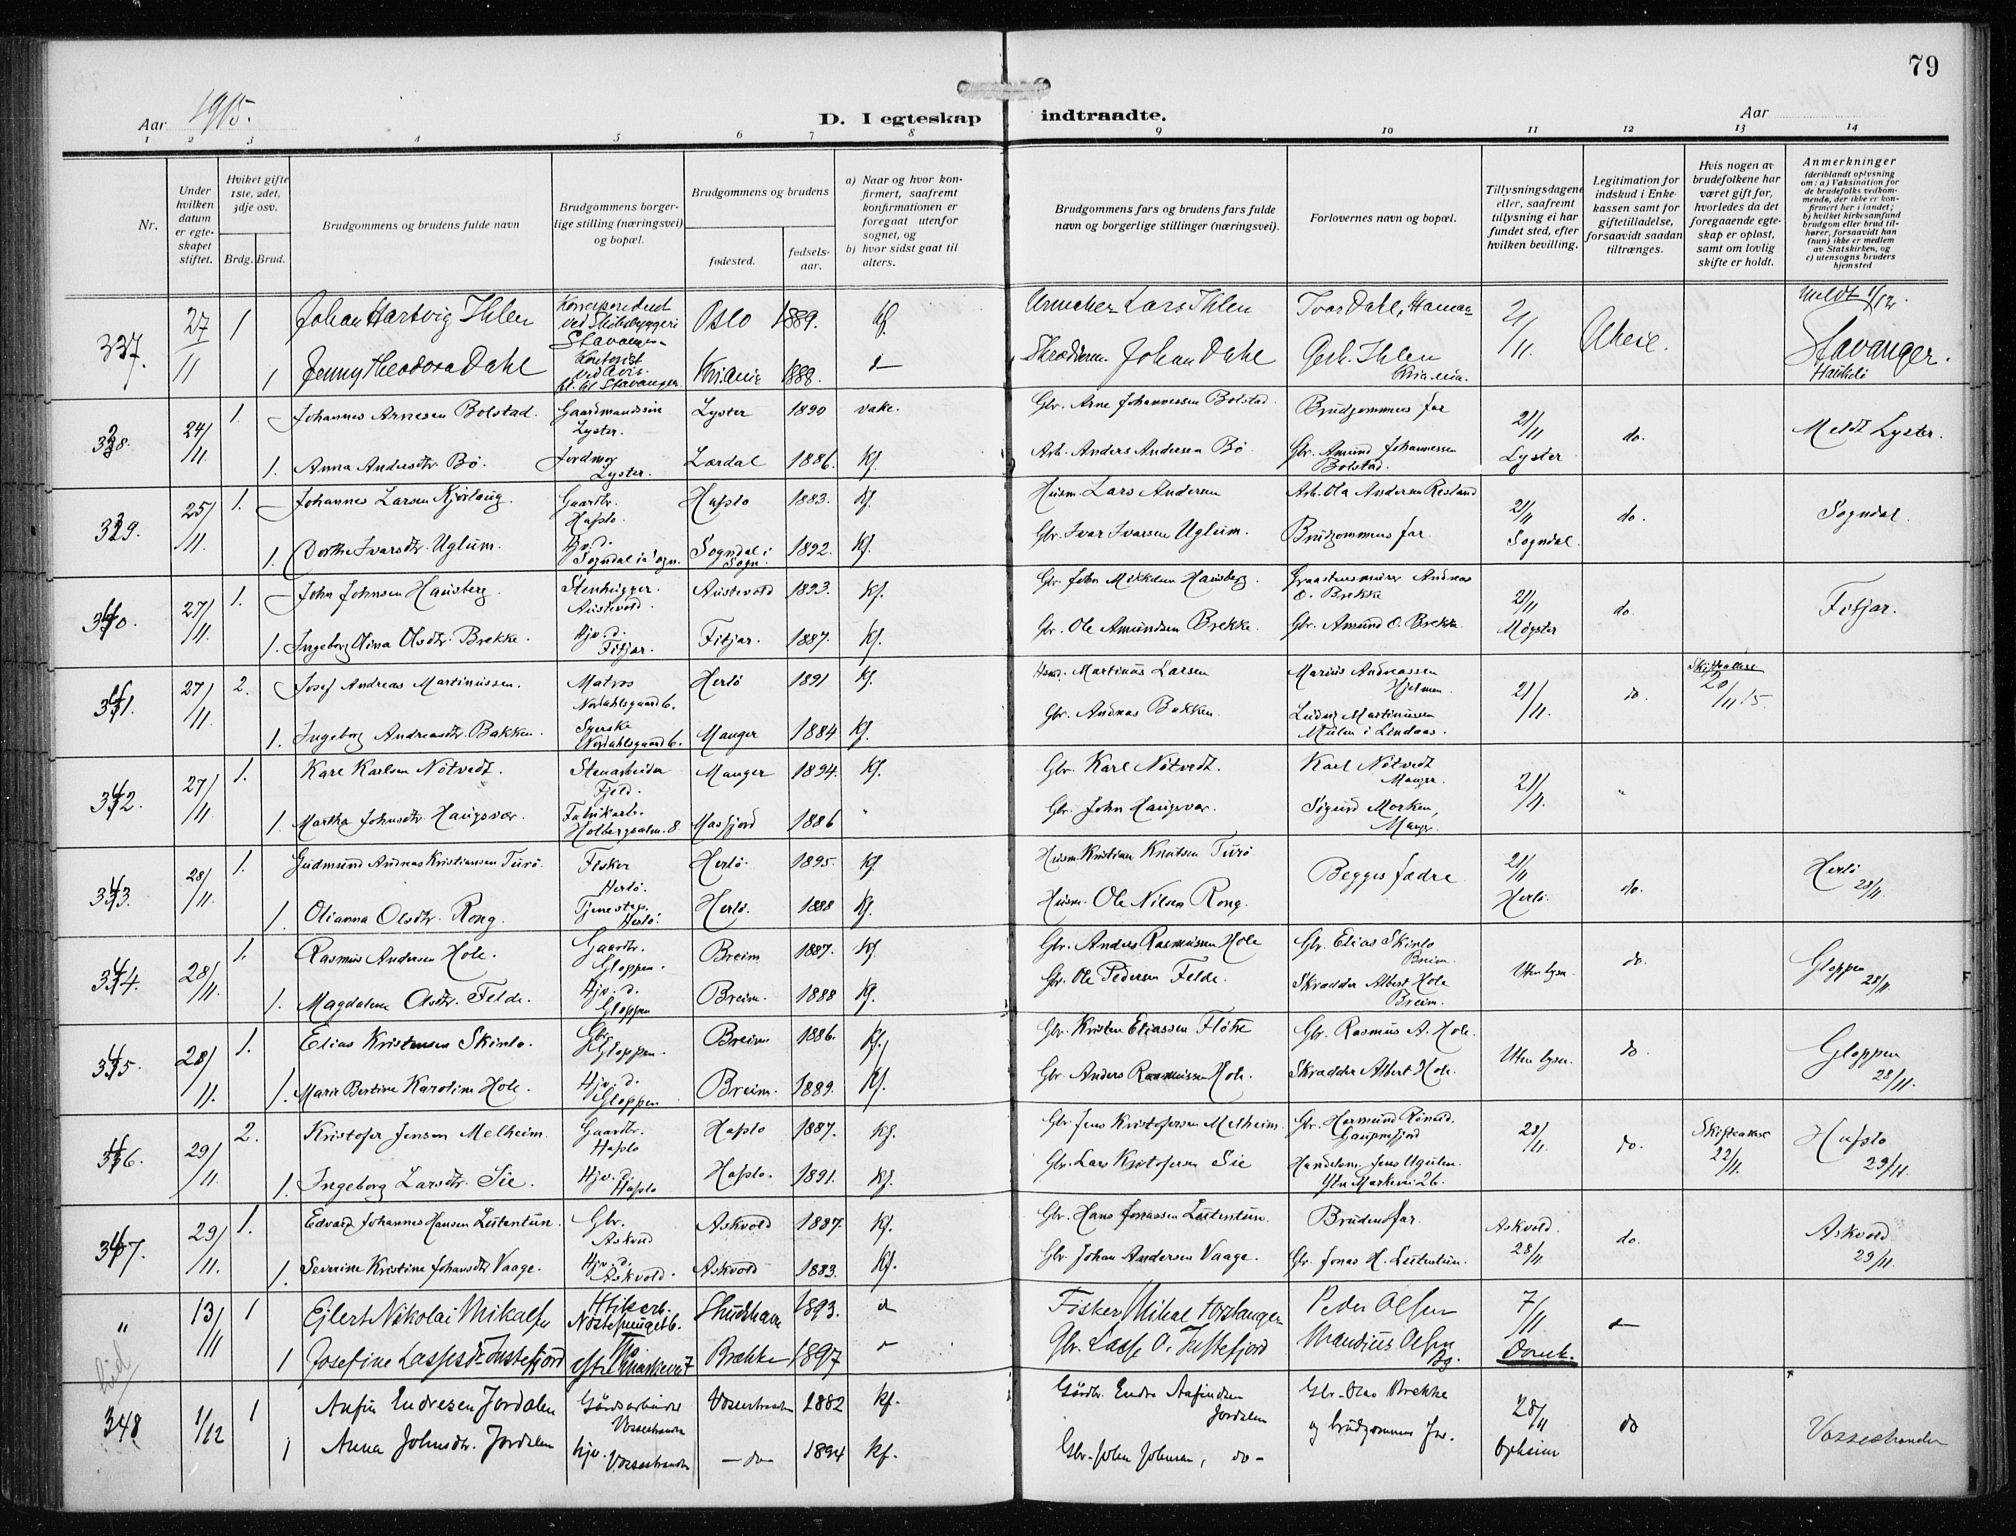 79
Aar 1915.
D. I egteskap indtraadte.
Aar
1 2 3 4 5 6 7 8 9 10 11 12 13 14
Nr.
Under hvilken datum er egteskapet stiftet.
Hvilket gifte 1ste, 2det, 3dje osv.
Brdg. Brud.
Brudgommens og brudens fulde navn
Brudgommens borgerlige stilling (næringsvei) og bopæl.
Brudgommens og brudens
fødested.
fødselsaar.
a) Naar og hvor konfirmert, saafremt konfirmationen er foregaat utenfor sognet, og
b) hvor sidst gaat til alters.
Brudgommens fars og brudens fars fulde navn og borgerlige stillinger (næringsvei).
Forlovernes navn og bopæl.
Tillysningsdagene eller, saafremt tillysning ei har fundet sted, efter hvilken bevilling.
Legitimation for indskud i Enkekassen samt for giftetilladelse, forsaavidt saadan tiltrænges.
Hvis nogen av brudefolkene har været gift før, hvorledes da det foregaaende egteskap er opløst, samt om lovlig skifte er holdt.
Anmerkninger (deriblandt oplysning om: a) Vaksination for de brudefolks vedkommende, der ikke er konfirmert her i landet; b) hvilket kirkesamfund brudgom eller brud tilhører, forsaavidt han (hun) ikke er medlem av Statskirken, og c) utensogns bruders hjemsted
337. 27/11 1 Johan Hartvig Ihlen Korrespondent ved Skibsbyggeri Stavanger Oslo 1889. Kf. Urmaker Lars Ihlen Ivar Dahl, Hamar 21/11 Meldt 1/12.
1 Jenny Theodora Dahl Kontorist Stavanger Kr.ania 1888. Johan Dahl Ihlen Kria.nia. Stavanger.
338. 24/11 1. Johannes Arnesen Bolstad. Gaardmandssøn Lyster. Lyster 1890 Gbr. Arne Johannessen Bolstad. Brudgommens far 21/11 Lyster do. Meldt Lyster.
1. Anna Andersdtr. Bø. Jordmor Lyster. Lærdal 1886. Kf. Arb. Anders Andersen Bø Gbr. Amund Johannessen Bolstad.
339. 25/11. 1. Johannes Larsen Kjørlaug. Gaardbr. Hafslo. Hafslo 1883. Kf. Husm. Lars Andersen Arb. Ola Andersen 21/11 Sogndal. do. Sogndal.
1. Dorthe Ivarsdtr. Uglum. Hjv. d. Sogndal i Sogn. Sogndal i Sogn. 1892. Kf. Gbr. Ivar Ivarsen Uglum. Brudgommens far.
340. 27/11. 1. John Johnsen Hausberg. Stenhugger. Austevold. Austevold 1893. Kf. Gbr. John Mikkelsen Hausberg. Graastensmurer Andreas O. Brekke 21/11 Møgster do. Fitjar.
1. Ingeborg Olina Olsdtr. Brekke. Hjv. d. Fitjar. Fitjar. 1887. Kf. Gbr. Ole Amundsen Brekke. Gbr. Amund O. Brekke.
341. 27/11. 2. Josef Andreas Martinussen. Matros Nordahlsgaard 6. Herlø 1891 Kf. Martinus Larsen Marius Andreassen Hjelmen 21/11. do Skifteattest 20/11 15.
1. Ingeborg Andreasdtr. Bakken. Syerske Nordahlsgaard 6. Manger 1884 Kf. Gbr. Andreas Bakken. Ludvig Martinussen Mulen i Lindaas.
342. 27/11. 1. Karl Karlsen Nøtvedt. Stenarbeider Fjeld. Manger 1894. Kf. Gbr. Karl Nøtvedt. Karl Nøtvedt Manger. 21/11. "
1. Martha Johnsdtr. Haugsvær. Fabrikarb. Holbergsalm. 8 Masfjord 1886 " Gbr. John Haugsvær. Sigurd Morken, Manger.
343. 28/11. 1. Gudmund Andreas Kristiansen Turø. Fisker Herlø. Herlø. 1895. Kf. Husm. Kristian Knutsen Turø Begges fædre. 21/11 Herlø. do. Herlø 28/11.
1. Olianna Olsdtr. Rong. Tjenestep. Herlø. Herlø. 1888 Kf. Husm. Ole Nilsen Rong.
344. 28/11. 1. Rasmus Andersen Hole. Gaardbr. Gloppen. Breim 1887. Kf Gbr. Anders Rasmussen Hole Gbr. Elias Skinlo Breim. Uten lysn. do. Gloppen 28/11.
1. Magdalene Olsdtr. Felde. Hjv. d. Gloppen Breim. 1888 Kf. Gbr. Ole Pedersen Felde. Skrædder Albert Hole Breim.
345. 28/11. 1. Elias Kristensen Skinlo. Gbr. Gloppen. Breim 1886. Kf. Gbr. Kristen Eliassen Fløtre Gbr. Rasmus A. Hole. Uten lysn. do. Gloppen 28/11.
1. Marie Bertine Karoline Hole. Hjv. d. Gloppen Breim. 1889. Kf. Gbr. Anders Rasmussen Hole. Skrædder Albert Hole.
346. 29/11 2. Kristofer Jensen Melheim. Gaardbr. Hafslo Hafslo 1887. Kf. Gbr. Jens Kristofersen Melheim. Gbr. Hermund Rønnei Gaupnefjord 28/11. do. Skifteattest 22/11. Hafslo 29/11.
1. Ingeborg Larsdtr. Sie. Hjv. d. Hafslo Hafslo. 1891. Kf. Gbr. Lars Kristofersen Sie Handelsm. Jens Ugulen. Ytre Markevei 26.
347. 29/11. 1. Edvard Johannes Hansen Lutentun. Gbr. Askvold Askvold 1887. Kf. Gbr. Hans Jonassen Lutentun. Brudens far. Askvold. 28/11 do. Askvold 29/11.
1. Severine Kristine Johansdtr. Vaage. Hjv. d. Askvold. Askvold 1883. Kf. Gbr. Johan Andersen Vaage. Gbr. Jonas H. Lutentun.
" 13/11 1 Ejlert Nikolai Mikalsen Nøstesmuget 6. Skudehavn 1893. Fisker Mikal Torstangen Peder Olsen 7/11 Domk.
1 Josefine Lassesdtr. Instefjord Ytre Markevei 7 Brække 1897 Gbr. Lasse O. Instefjord Mandius Olsen Bg.
348 1/12 1 Anfin Endresen Jordalen Gårdsarbeider Vossestranden Vossestranden 1882 kf. Gårdbr. Endre Anfindsen Jordalen Gbr. Olav Brekke 28/11 Opheim do Vossestranden
1 Anna Johnsdtr. Jordalen hjv. Vossestranden - do - 1894 kf. Gbr. John Johnsen, do - og brudgommens far.